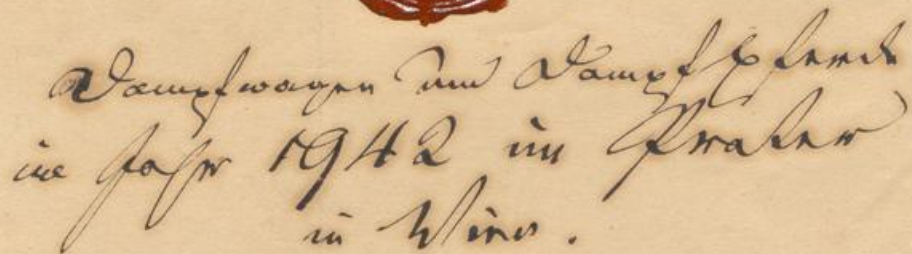 Dampfwagen und Dampfpferde
im Jahr 1942 im Prater
in Wien.